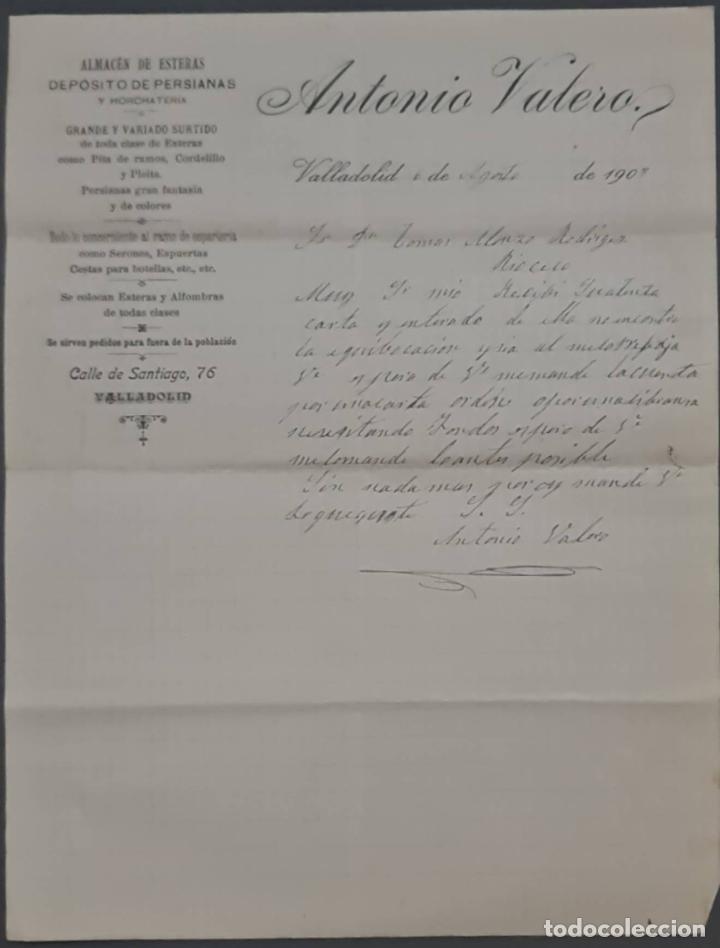 ALMACÉN DE ESTERAS
DEPÓSITO DE PERSIANAS
Y HORCHATERIA
GRANDE Y VARIADO SURTIDO
de toda clase de Esteras
como Pita de ramos, Cordelillo
y Pleita.
Persianas gran fantasía
y de colores
Todo lo concerniente al ramo de espartería
como Serones, Espuertas
Cestas para botellas, etc., etc.
Se colocan Esteras y Alfombras
de todas clases
Se sirven pedidos para fuera de la población
Calle de Santiago, 76
VALLADOLID
Antonio Valero.
Valladolid 6 de Agosto de 190
Sr Dn Tomas Alonzo Rodriges
Rioceco
Muy Sr mio Recibi
carta y enterado de ella no encontre
la equibocacion
espero de me mande la cuenta
por una carta orden o por una libranza
necesitando fondos espero de
me lo mande lo antes posible
Sin nada mas por oy mande
S. S.
Antonio Valero
todocoleccion